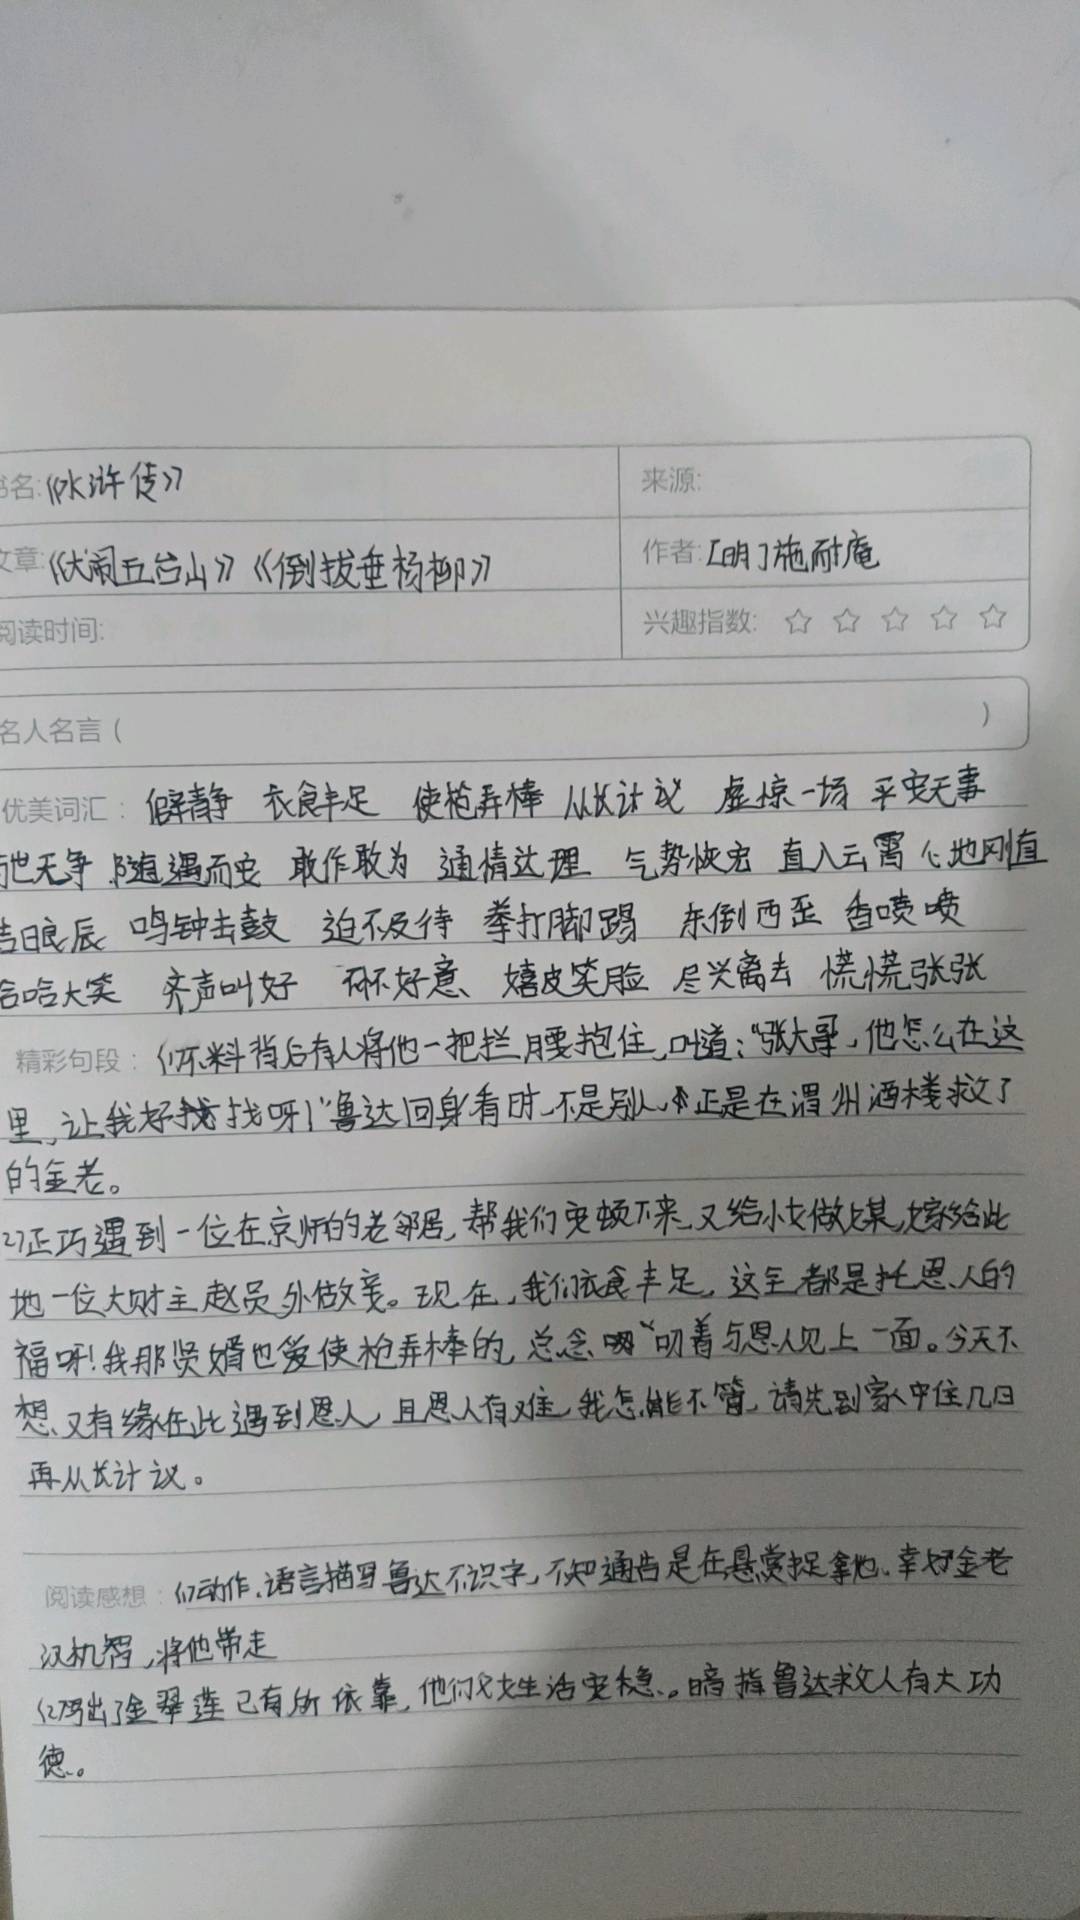 书名:《水浒传》
来源:
文章:《大闹五台山》《倒拔垂杨柳》
作者:[明]施耐庵
阅读时间:
兴趣指数: ☆ ☆ ☆ ☆ ☆
名人名言( )
优美词汇: 僻静 衣食丰足 使枪弄棒 从长计议 虚惊一场 平安无事
与世无争 随遇而安 敢作敢为 通情达理 气势恢宏 直入云霄 心地刚直
吉日良辰 鸣钟击鼓 迫不及待 拳打脚踢 东倒西歪 香喷喷
哈哈大笑 齐声叫好 不怀好意 嬉皮笑脸 尽兴离去 慌慌张张
精彩句段: (1)不料背后有人将他一把拦腰抱住,叫道:“张大哥,他怎么在这
里,让我好找呀!”鲁达回身看时,不是别人,正是在渭州酒楼救了
的金老。
(2)正巧遇到一位在京师的老邻居,帮我们安顿下来,又给小女做媒,嫁给此
地一位大财主赵员外做妾。现在,我们衣食丰足,这全都是托恩人的
福呀!我那贤婿也爱使枪弄棒的,总念叨着与恩人见上一面。今天不
想,又有缘在此遇到恩人,且恩人有难,我怎能不管,请先到家中住几日
再从长计议。
阅读感想: (1)动作、语言描写鲁达不识字,不知通告是在悬赏捉拿他,幸好金老
汉机智,将他带走
(2)写出了金翠莲已有所依靠,他们父女生活安稳。暗指鲁达救人有大功
德。